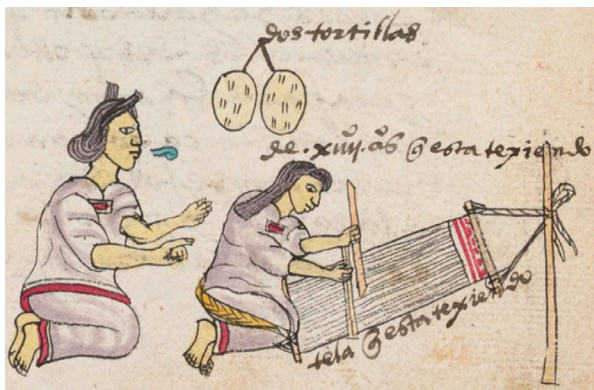 dos tortillas
de .xiiijº. aºs q̃ esta texiendo
tela q̃ esta texiendo